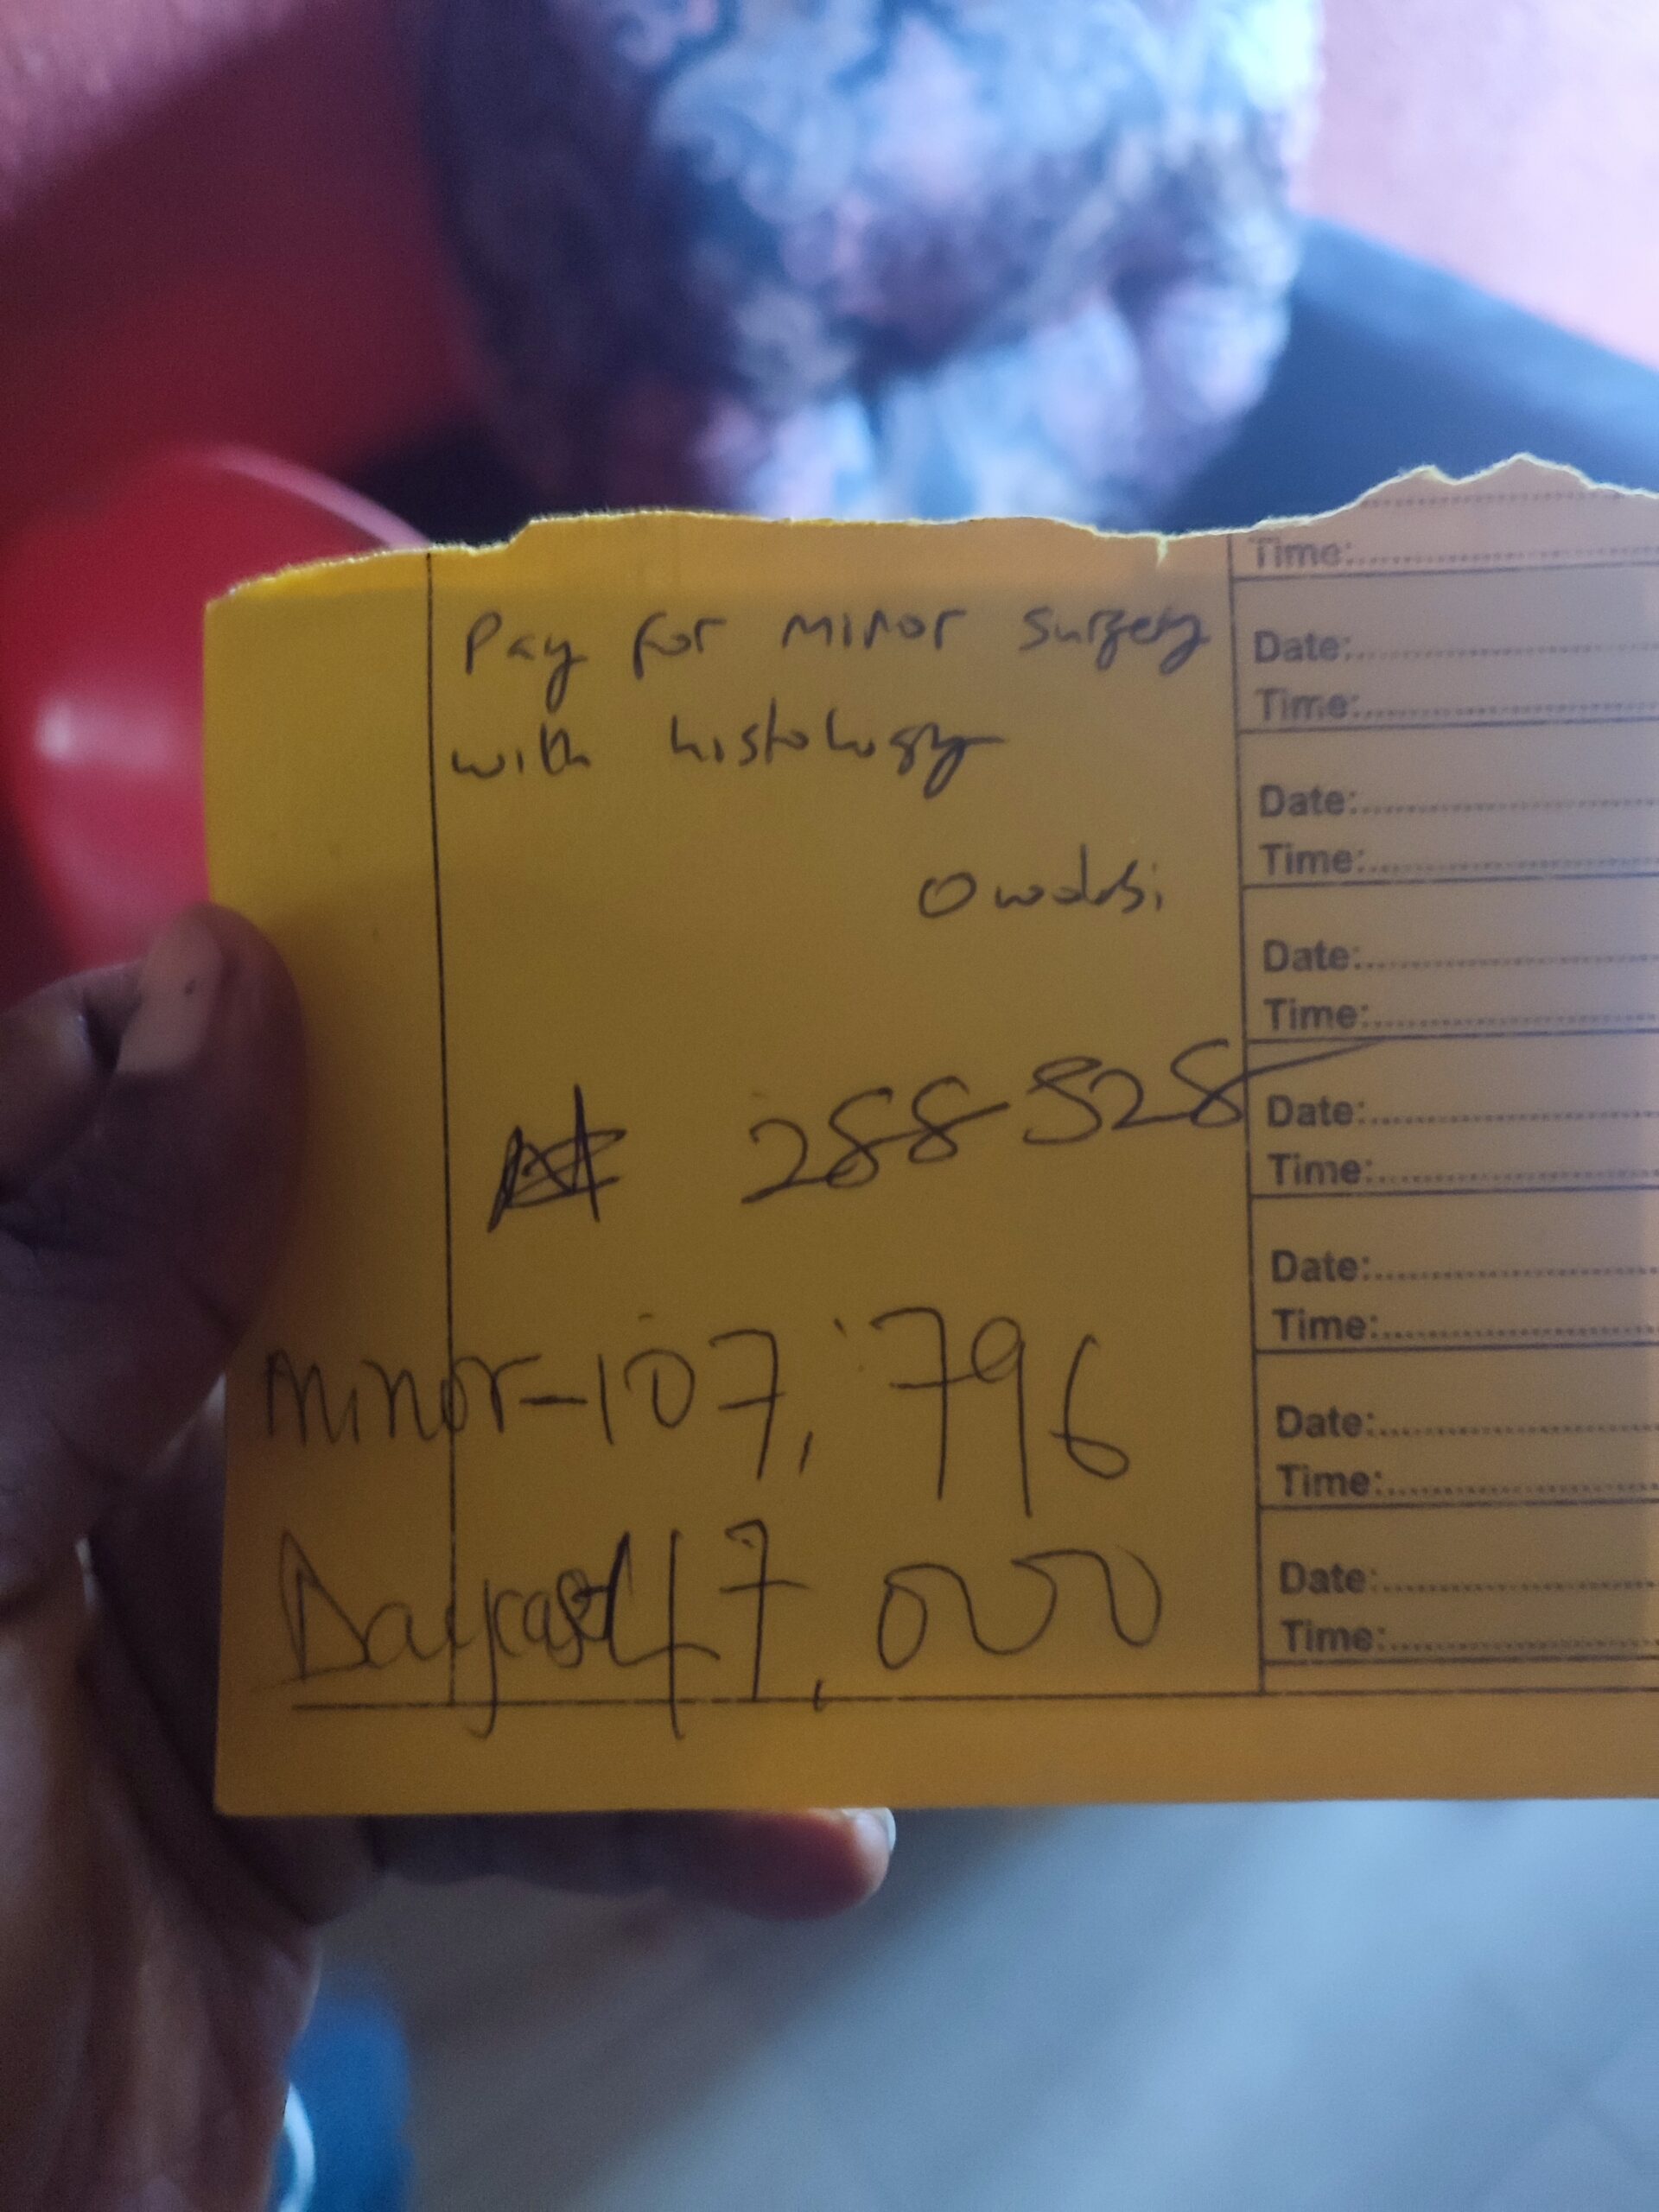 Time:
Pay for minor surgery
Date:
Time:
with histology
Date:
Time:
Date:
Time:
288528
Date:
Time:
Date:
Time:
minor-107,796
Date:
Time:
Daycase 47,000
Date:
Time: